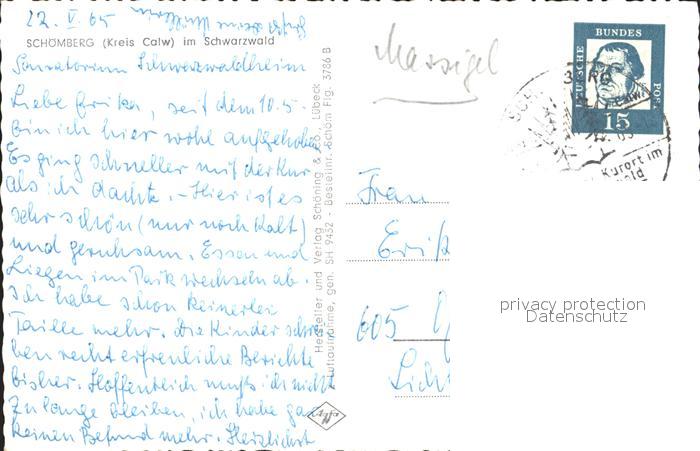 22. V. 65
SCHÖMBERG (Kreis Calw) im Schwarzwald
Sanatorium Schwarzwaldheim
Liebe Erika, seit dem 10.5.
bin ich hier wohl aufgehoben
Es ging schneller mit der Kur
als ich dachte. - Hier ist es
sehr schön (nur noch kalt)
und geruhsam. Essen und
Liegen im Park wechseln ab.
Ich habe schon keinerlei
Taille mehr. Die Kinder schrei-
ben recht erfreuliche Berichte
bisher. Hoffentlich muß ich nicht
zu lange bleiben, ich habe gar
keinen Befund mehr. Herzlichst
Hersteller und Verlag Schöning & Co., Lübeck
Luftaufnahme, gen. SH 9452 - Bestellnr. Schöm Flg. 3786 B
Agfa
DEUTSCHE BUNDES POST
15
Kurort im
Frau
Erik
605
Licht
privacy protection
Datenschutz